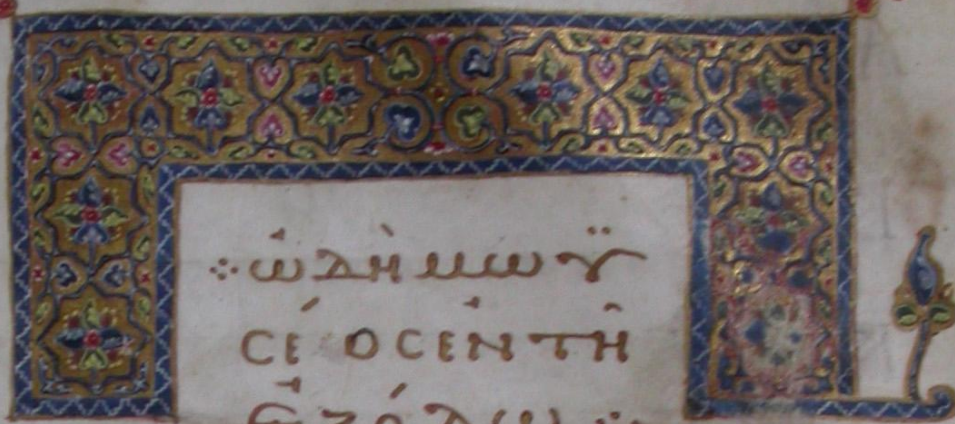 ⁘ ὠδὴ μωϋ
σέος ἐν τῇ
ἐξόδω :·